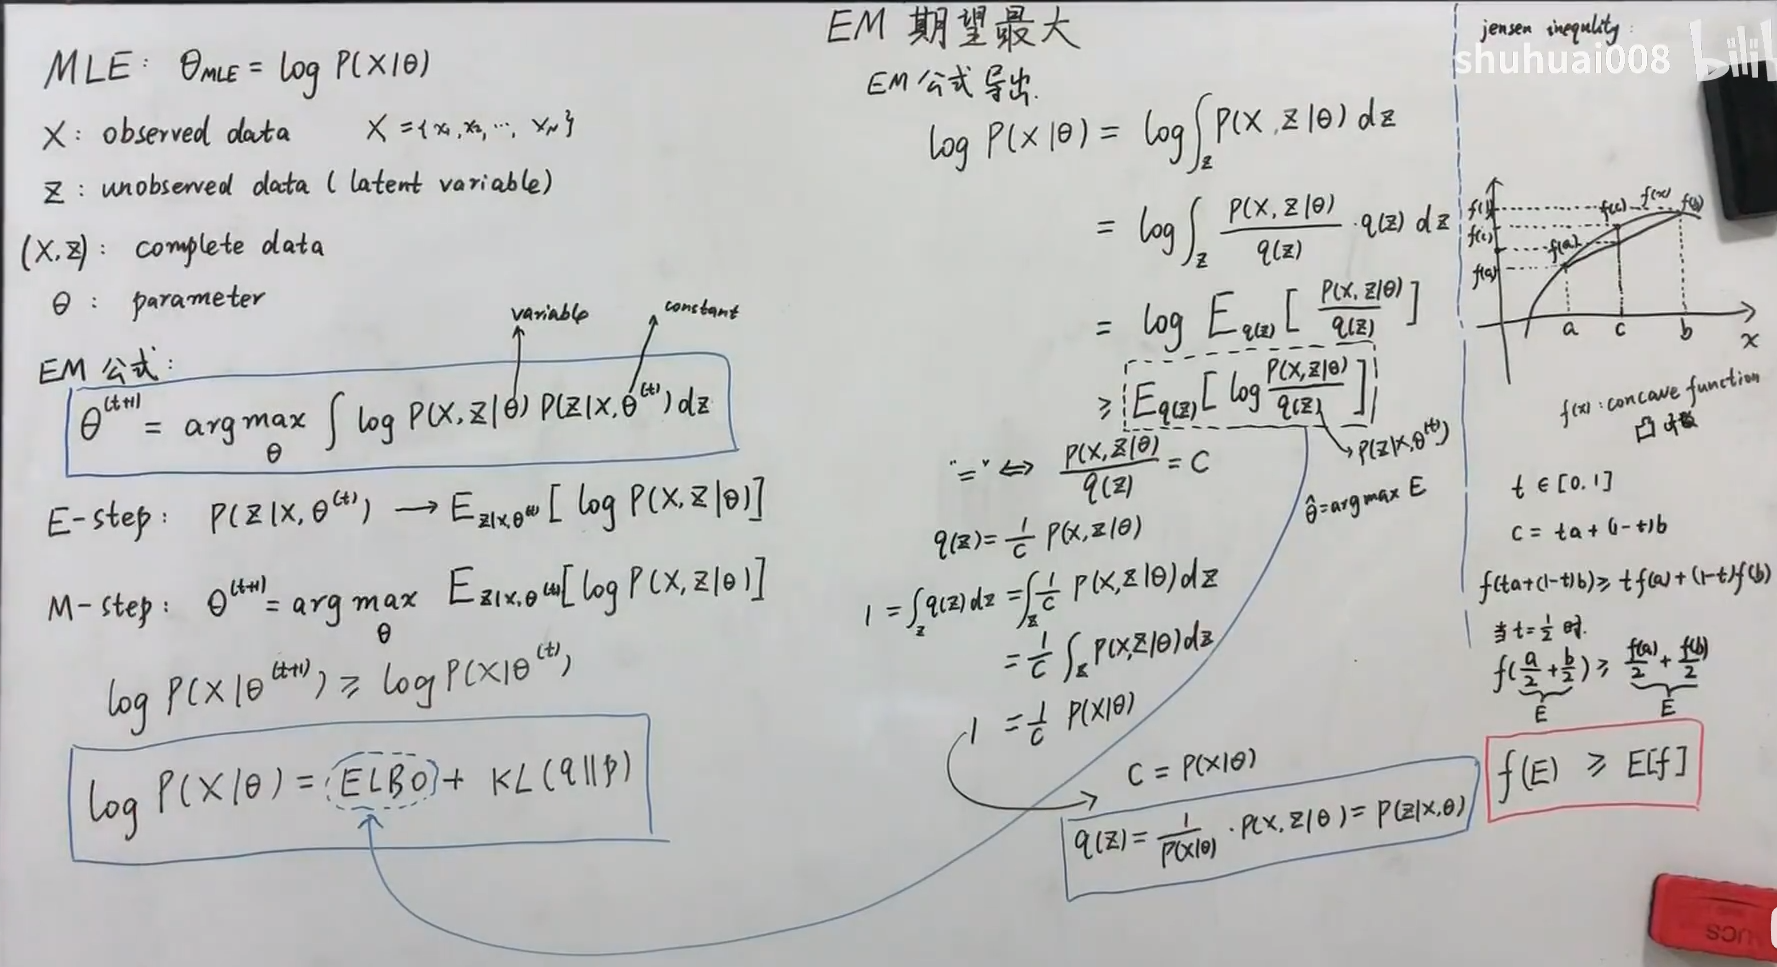 EM 期望最大
MLE: θ_MLE = log P(X|θ)
X: observed data X = {x₁, x₂, ⋯, x_N}
Z: unobserved data (latent variable)
(X, Z): complete data
θ: parameter
EM 公式:
variable
constant
θ^(t+1) = arg max_θ ∫ log P(X,Z|θ) P(Z|X,θ^(t)) dz
E-step: P(Z|X,θ^(t)) → E_Z|X,θ^(t) [log P(X,Z|θ)]
M-step: θ^(t+1) = arg max_θ E_Z|X,θ^(t) [log P(X,Z|θ)]
log P(X|θ^(t+1)) ≥ log P(X|θ^(t))
log P(X|θ) = ELBO + KL(q||p)
EM 公式导出.
log P(X|θ) = log ∫_Z P(X,Z|θ) dz
= log ∫_Z P(X,Z|θ)/q(z) · q(z) dz
= log E_q(z) [P(X,Z|θ)/q(z)]
≥ E_q(z) [log P(X,Z|θ)/q(z)]
P(Z|X,θ^(t))
θ̂ = arg max E
"=" ⇔ P(X,Z|θ)/q(z) = C
q(z) = 1/C P(X,Z|θ)
1 = ∫_Z q(z) dz = ∫_Z 1/C P(X,Z|θ) dz
= 1/C ∫_Z P(X,Z|θ) dz
1 = 1/C P(X|θ)
C = P(X|θ)
q(z) = 1/P(X|θ) · P(X,Z|θ) = P(Z|X,θ)
jensen inequlity:
shuhuai008 bilibili
f(x)
f(b)
f(c)
f(a)
f(b)
f(c)
f(a)
a c b
x
f(x): concave function
t ∈ [0.1]
c = ta + (1-t)b
f(ta+(1-t)b) ≥ tf(a) + (1-t)f(b)
当 t=1/2 时.
f(a/2 + b/2) ≥ f(a)/2 + f(b)/2
E E
f(E) ≥ E[f]
UCS